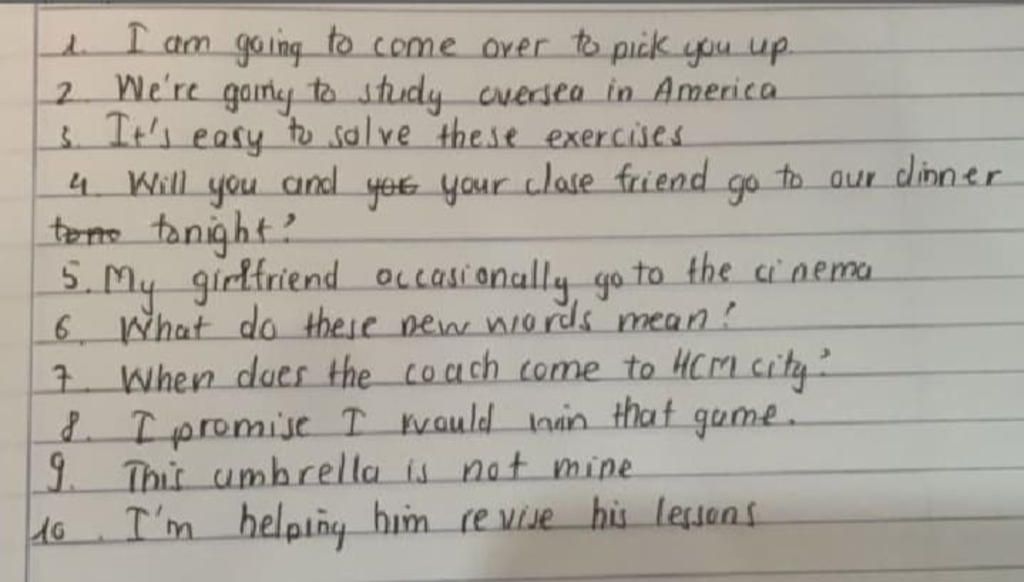 1. I am going to come over to pick you up.
2. We're going to study oversea in America
3. It's easy to solve these exercises
4. Will you and your close friend go to our dinner
tonight?
5. My girlfriend occasionally go to the cinema
6. What do these new words mean?
7. When does the coach come to HCM city?
8. I promise I would win that game.
9. This umbrella is not mine
10. I'm helping him revise his lessons